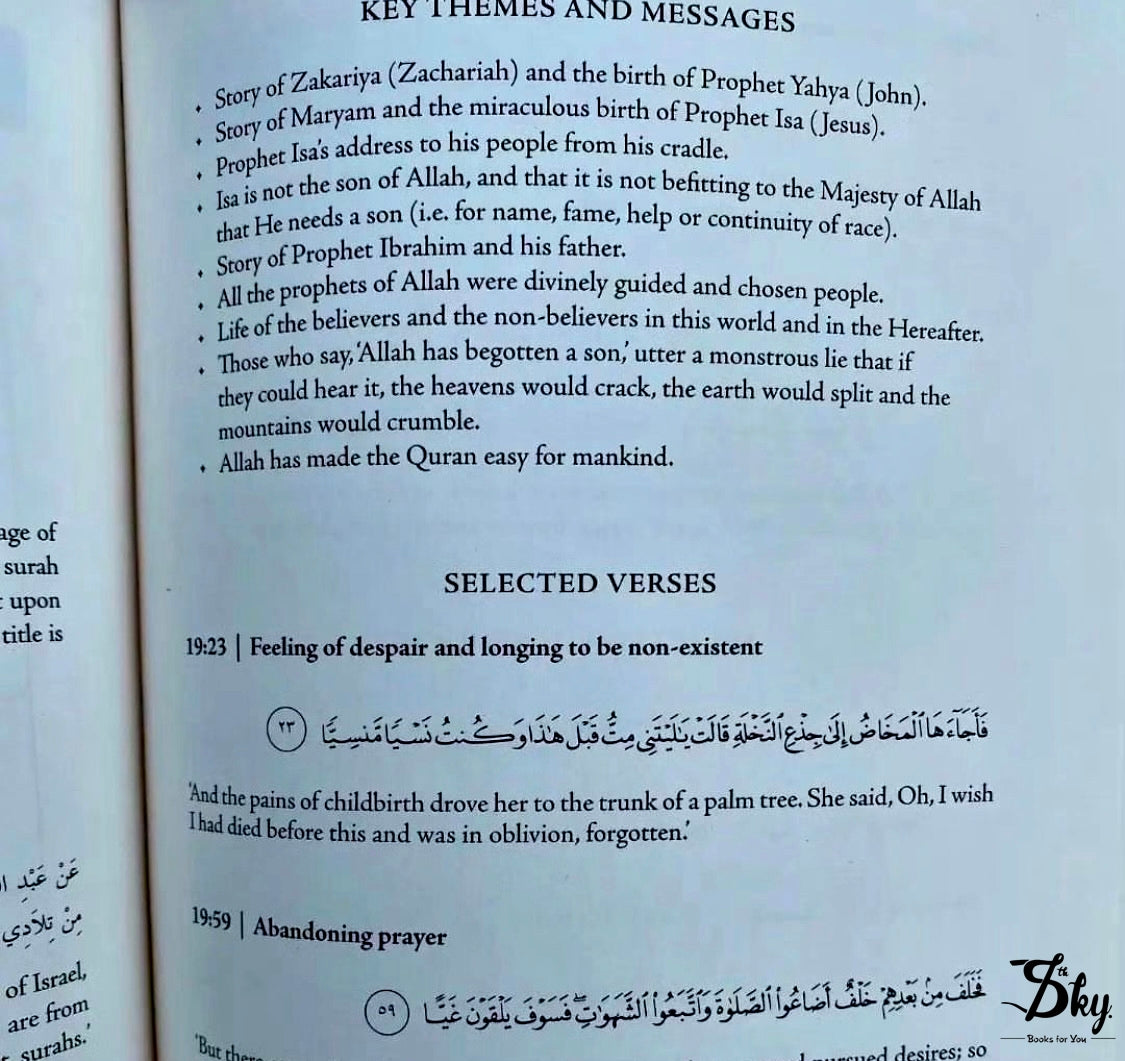 KEY THEMES AND MESSAGES
• Story of Zakariya (Zachariah) and the birth of Prophet Yahya (John).
• Story of Maryam and the miraculous birth of Prophet Isa (Jesus).
• Prophet Isa's address to his people from his cradle.
• Isa is not the son of Allah, and that it is not befitting to the Majesty of Allah
that He needs a son (i.e. for name, fame, help or continuity of race).
• Story of Prophet Ibrahim and his father.
• All the prophets of Allah were divinely guided and chosen people.
• Life of the believers and the non-believers in this world and in the Hereafter.
• Those who say, 'Allah has begotten a son,' utter a monstrous lie that if
they could hear it, the heavens would crack, the earth would split and the
mountains would crumble.
• Allah has made the Quran easy for mankind.
SELECTED VERSES
19:23 | Feeling of despair and longing to be non-existent
فَأَجَآءَهَا ٱلْمَخَاضُ إِلَىٰ جِذْعِ ٱلنَّخْلَةِ قَالَتْ يَٰلَيْتَنِى مِتُّ قَبْلَ هَٰذَا وَكُنتُ نَسْيًا مَّنسِيًّا ٢٣
'And the pains of childbirth drove her to the trunk of a palm tree. She said, Oh, I wish
I had died before this and was in oblivion, forgotten.'
19:59 | Abandoning prayer
فَخَلَفَ مِنۢ بَعْدِهِمْ خَلْفٌ أَضَاعُوا۟ ٱلصَّلَوٰةَ وَٱتَّبَعُوا۟ ٱلشَّهَوَٰتِ ۖ فَسَوْفَ يَلْقَوْنَ غَيًّا ٥٩
'But there desires; so
of
surah
upon
title is
عَنْ عَبْدِ
مِنْ تِلَادِي
of Israel,
are from
surahs.'
7th Sky.
Books for You